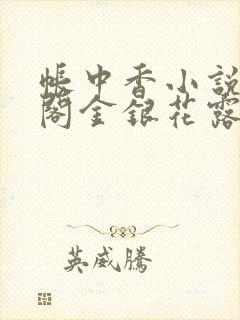 帳中香小説
閣金銀花露
英威騰